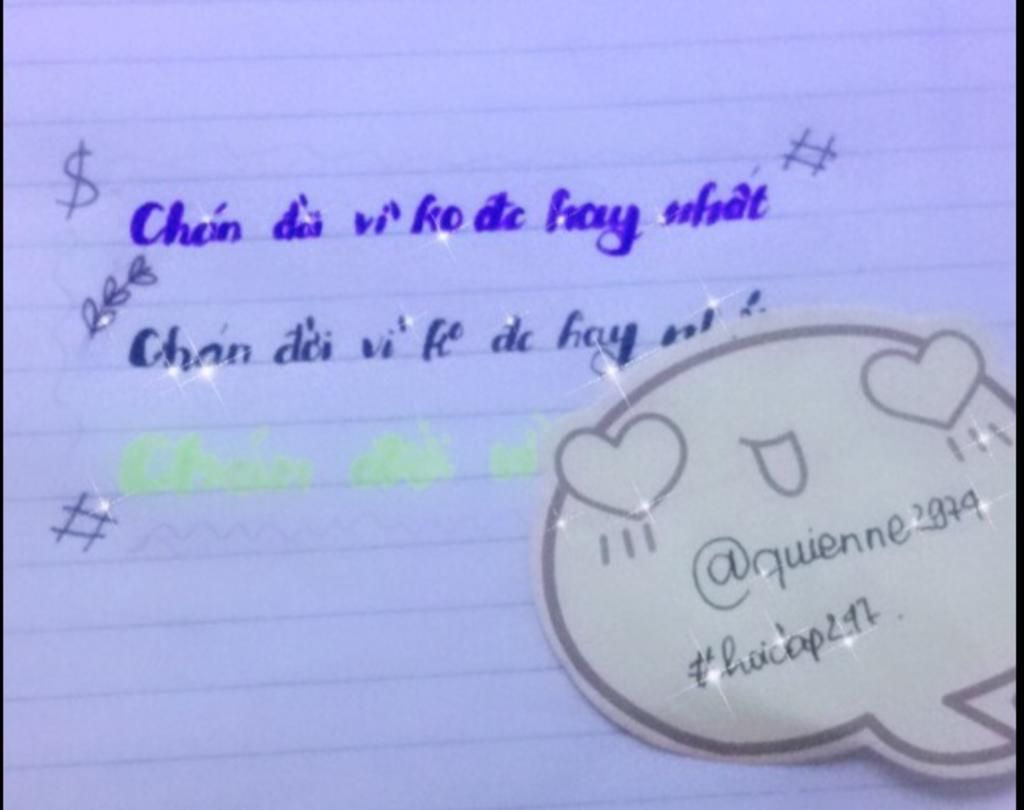 $ #
Chán đời vì ko đc hay nhất
Chán đời vì ko đc hay
Chán đời vì
#
@quienne2974
#hoidap247.